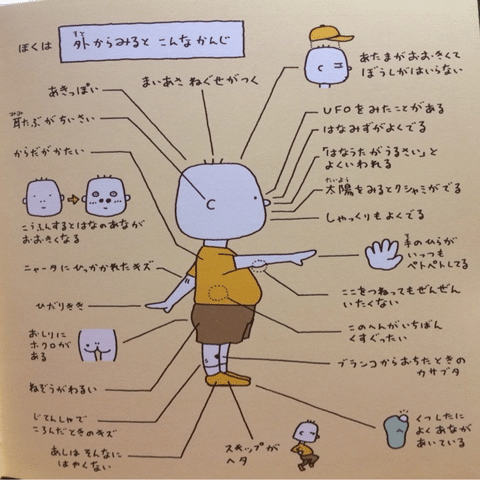 ぼくは 外からみると こんなかんじ
そと
あきっぽい
まいあさ ねぐせがつく
あたまがおおきくて
ぼうしがはいらない
みみ
耳たぶがちいさい
UFOをみたことがある
はなみずがよくでる
からだがかたい
「はなうたがうるさい」と
よくいわれる
たいよう
太陽をみるとクシャミがでる
しゃっくりもよくでる
こうふんするとはなのあなが
おおきくなる
て
手のひらが
いつも
ベトベトしてる
ニャータにひっかかれたキズ
ここをつねってもぜんぜん
いたくない
ひだりきき
このへんがいちばん
くすぐったい
おしりに
ホクロが
ある
ブランコからおちたときの
カサブタ
ねぞうがわるい
じてんしゃで
ころんだときのキズ
くつしたに
よくあなが
あいている
あしは そんなに
はやくない
スキップが
ヘタ